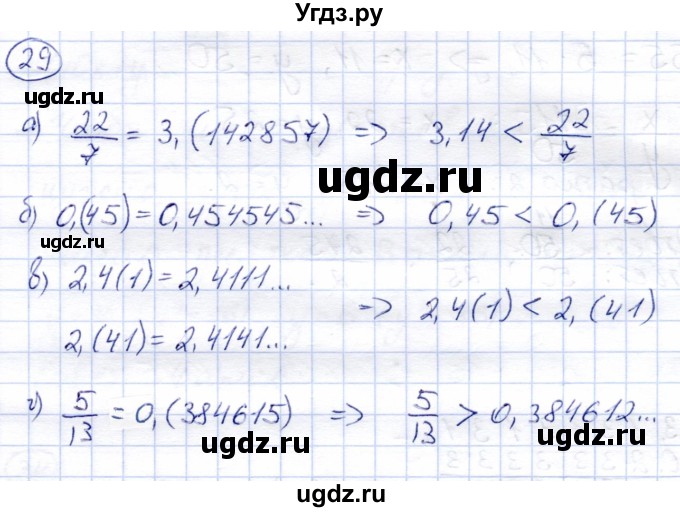 Угдз.ру
29
ugdz.ru
а) 22/7 = 3,(142857) => 3,14 < 22/7
ugdz.ru
ugdz.ru
б) 0,(45) = 0,454545... => 0,45 < 0,(45)
ugdz.ru
в) 2,4(1) = 2,4111...
=> 2,4(1) < 2,(41)
2,(41) = 2,4141...
ugdz.ru
г) 5/13 = 0,(384615) => 5/13 > 0,384612...
ugdz.ru
ugdz.ru
ugdz.ru
ugdz.ru